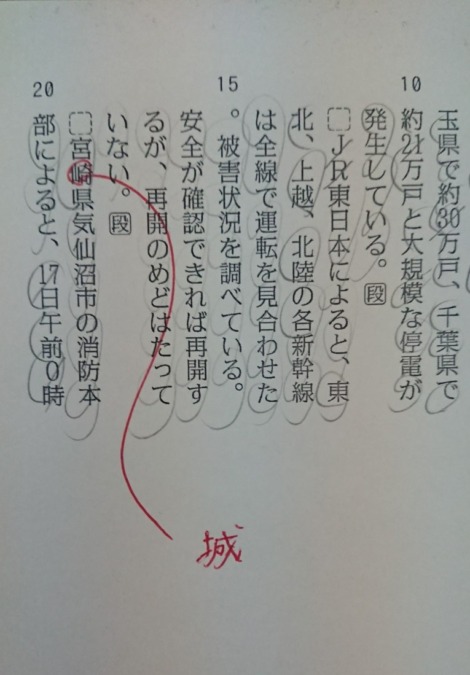 10
玉県で約30万戸、千葉県で
約21万戸と大規模な停電が
発生している。段
ＪＲ東日本によると、東
北、上越、北陸の各新幹線
15
は全線で運転を見合わせた
。被害状況を調べている。
安全が確認できれば再開す
るが、再開のめどはたって
いない。段
20
宮崎県気仙沼市の消防本
部によると、17日午前0時
城